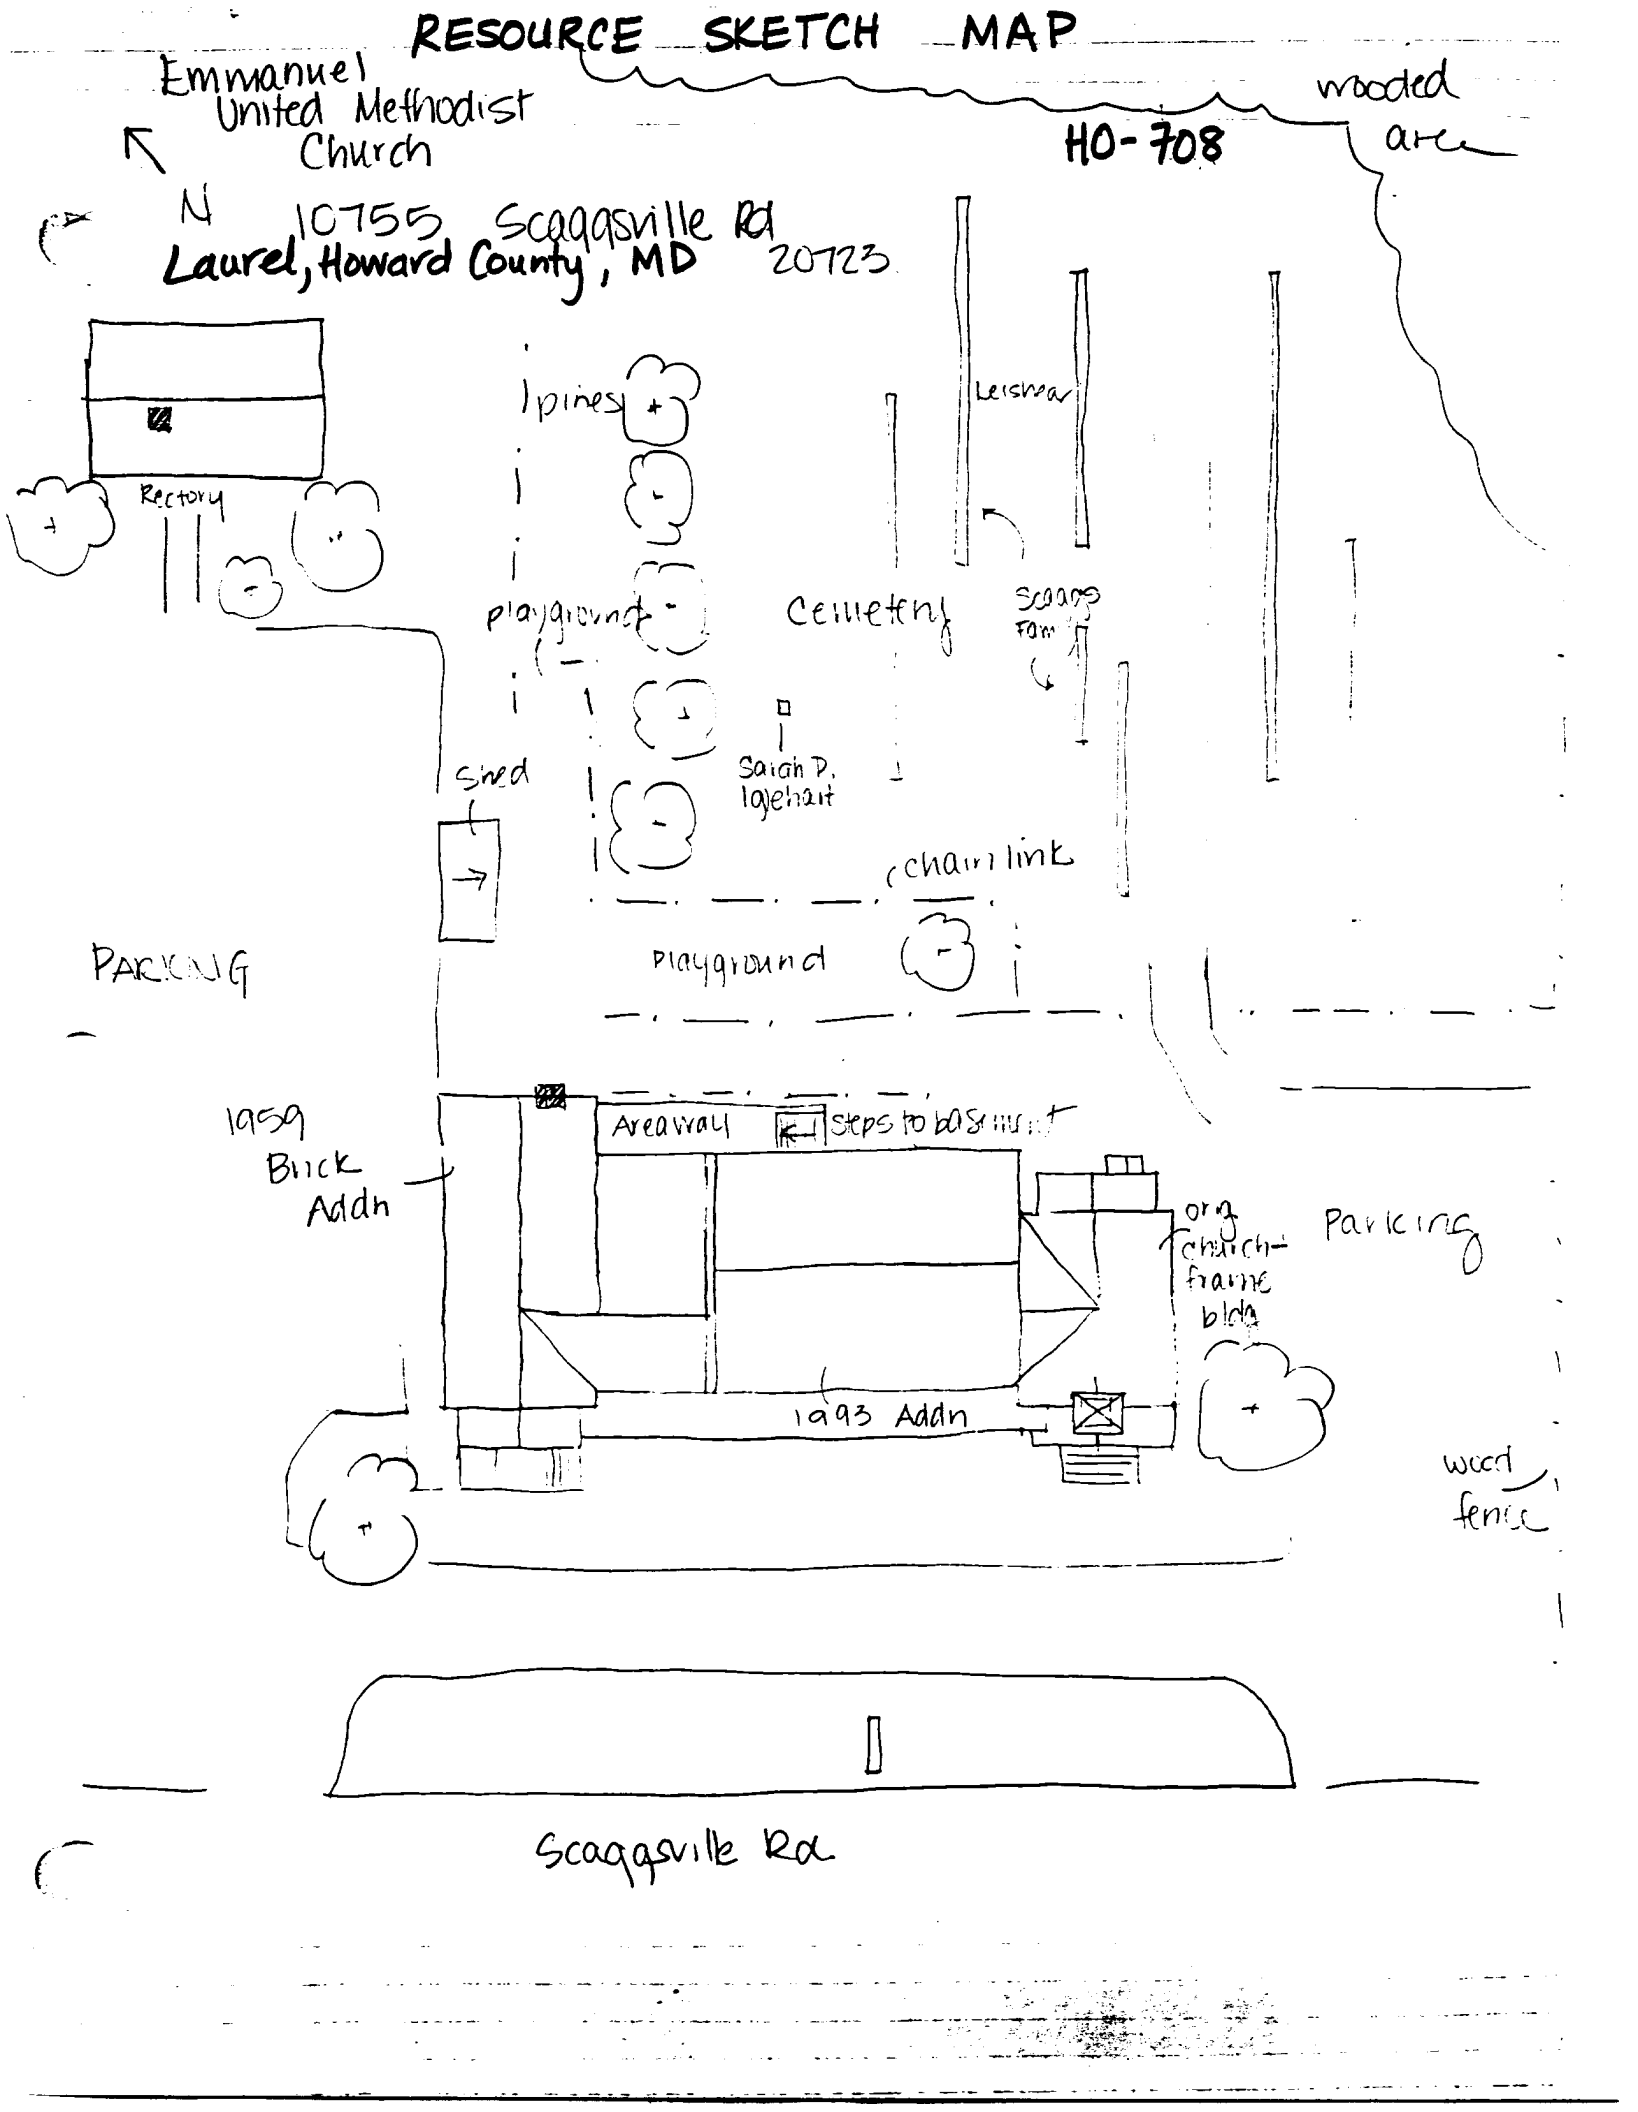 RESOURCE SKETCH MAP
Emmanuel
United Methodist
Church
wooded
area
HO-708
N
10755 Scaggsville Rd
Laurel, Howard County, MD 20723
pines
Leishear
Rectory
playground
Cemetery
Scaggs
Fam
Shed
Sarah D.
Iglehart
chain link
PARKING
playground
1959
Brick
Addn
Areaway
steps to basement
org
church-
frame
bldg
Parking
1993 Addn
wood
fence
Scaggsville Rd